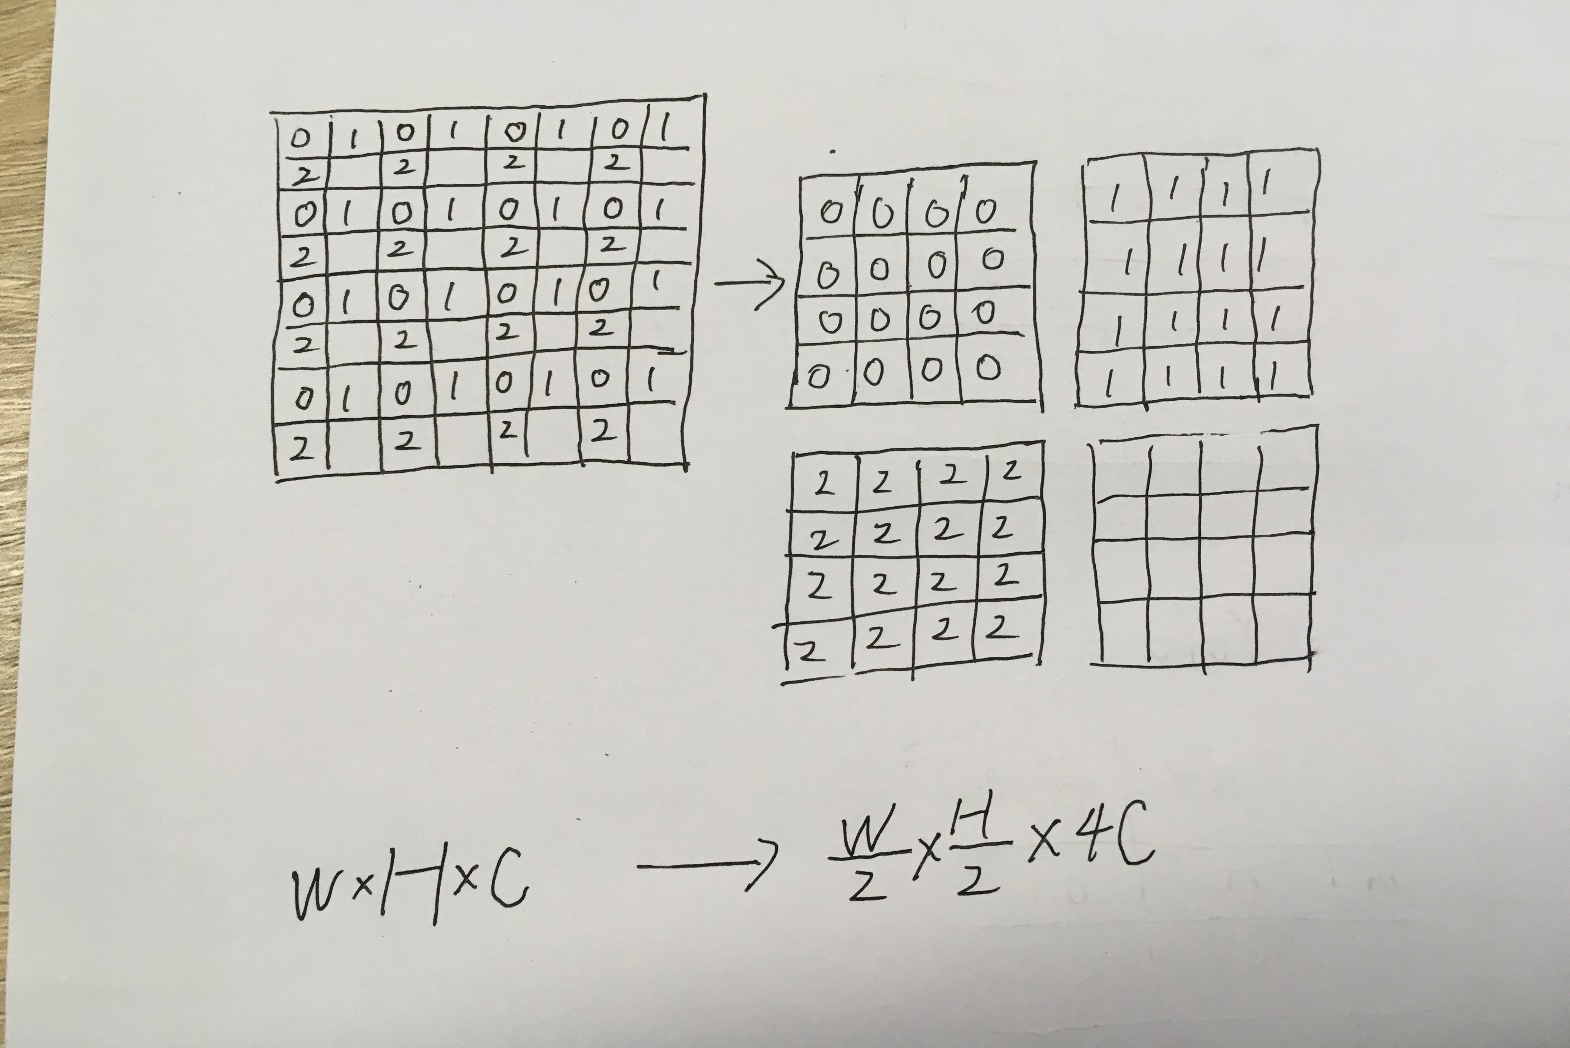 0 1 0 1 0 1 0 1
2 2 2 2
0 1 0 1 0 1 0 1
2 2 2 2
0 1 0 1 0 1 0 1
2 2 2 2
0 1 0 1 0 1 0 1
2 2 2 2
→
0 0 0 0
0 0 0 0
0 0 0 0
0 0 0 0
1 1 1 1
1 1 1 1
1 1 1 1
1 1 1 1
2 2 2 2
2 2 2 2
2 2 2 2
2 2 2 2
W×H×C → W/2 × H/2 × 4C